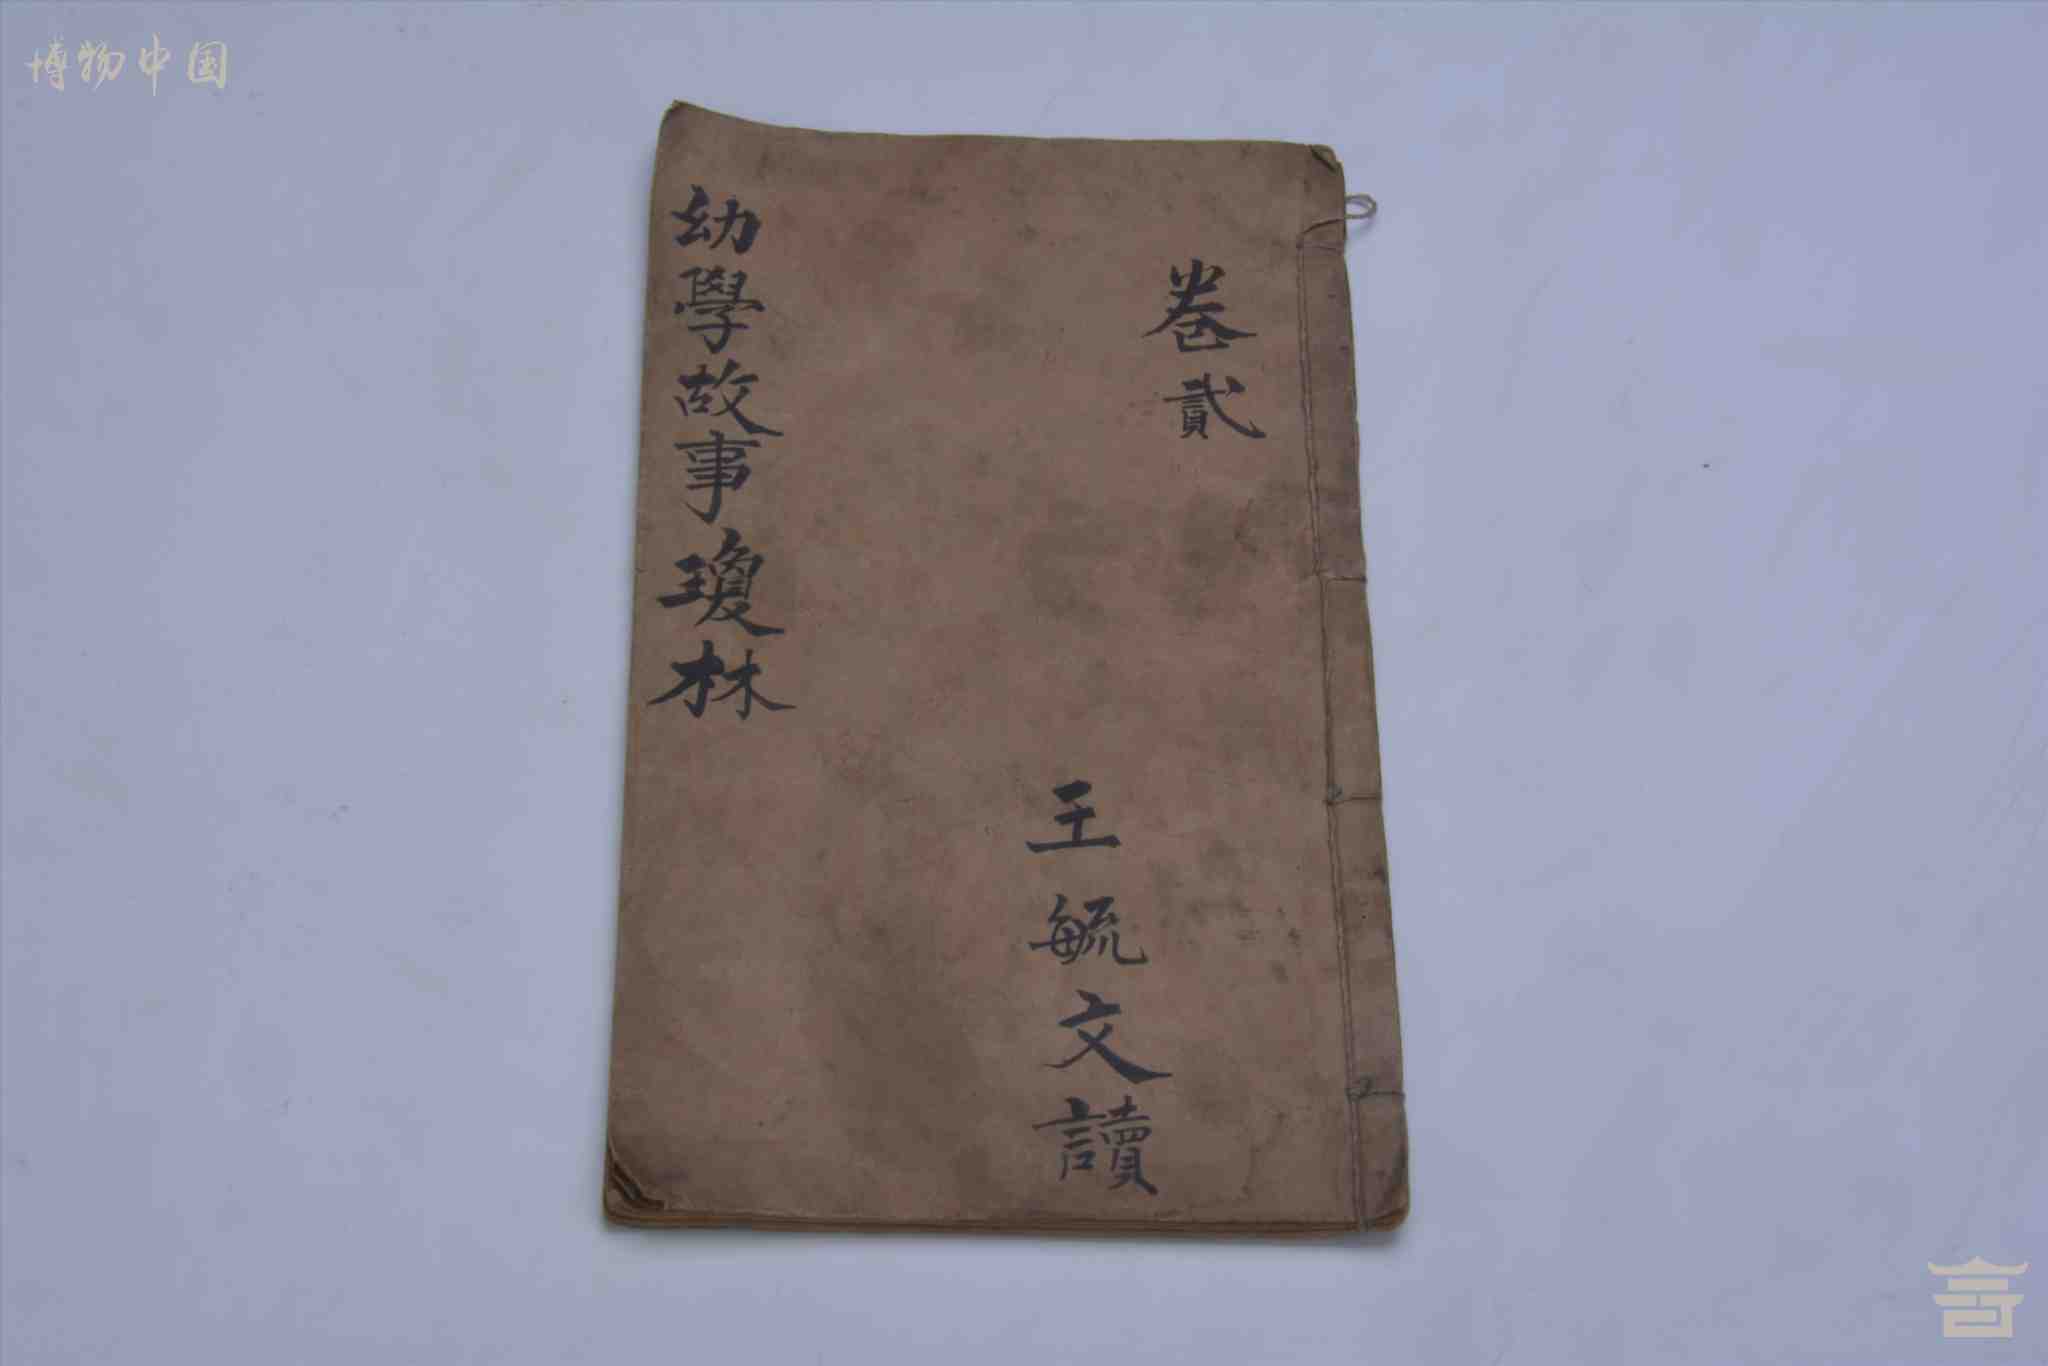 博物中国
卷貳
王毓文讀
幼學故事瓊林